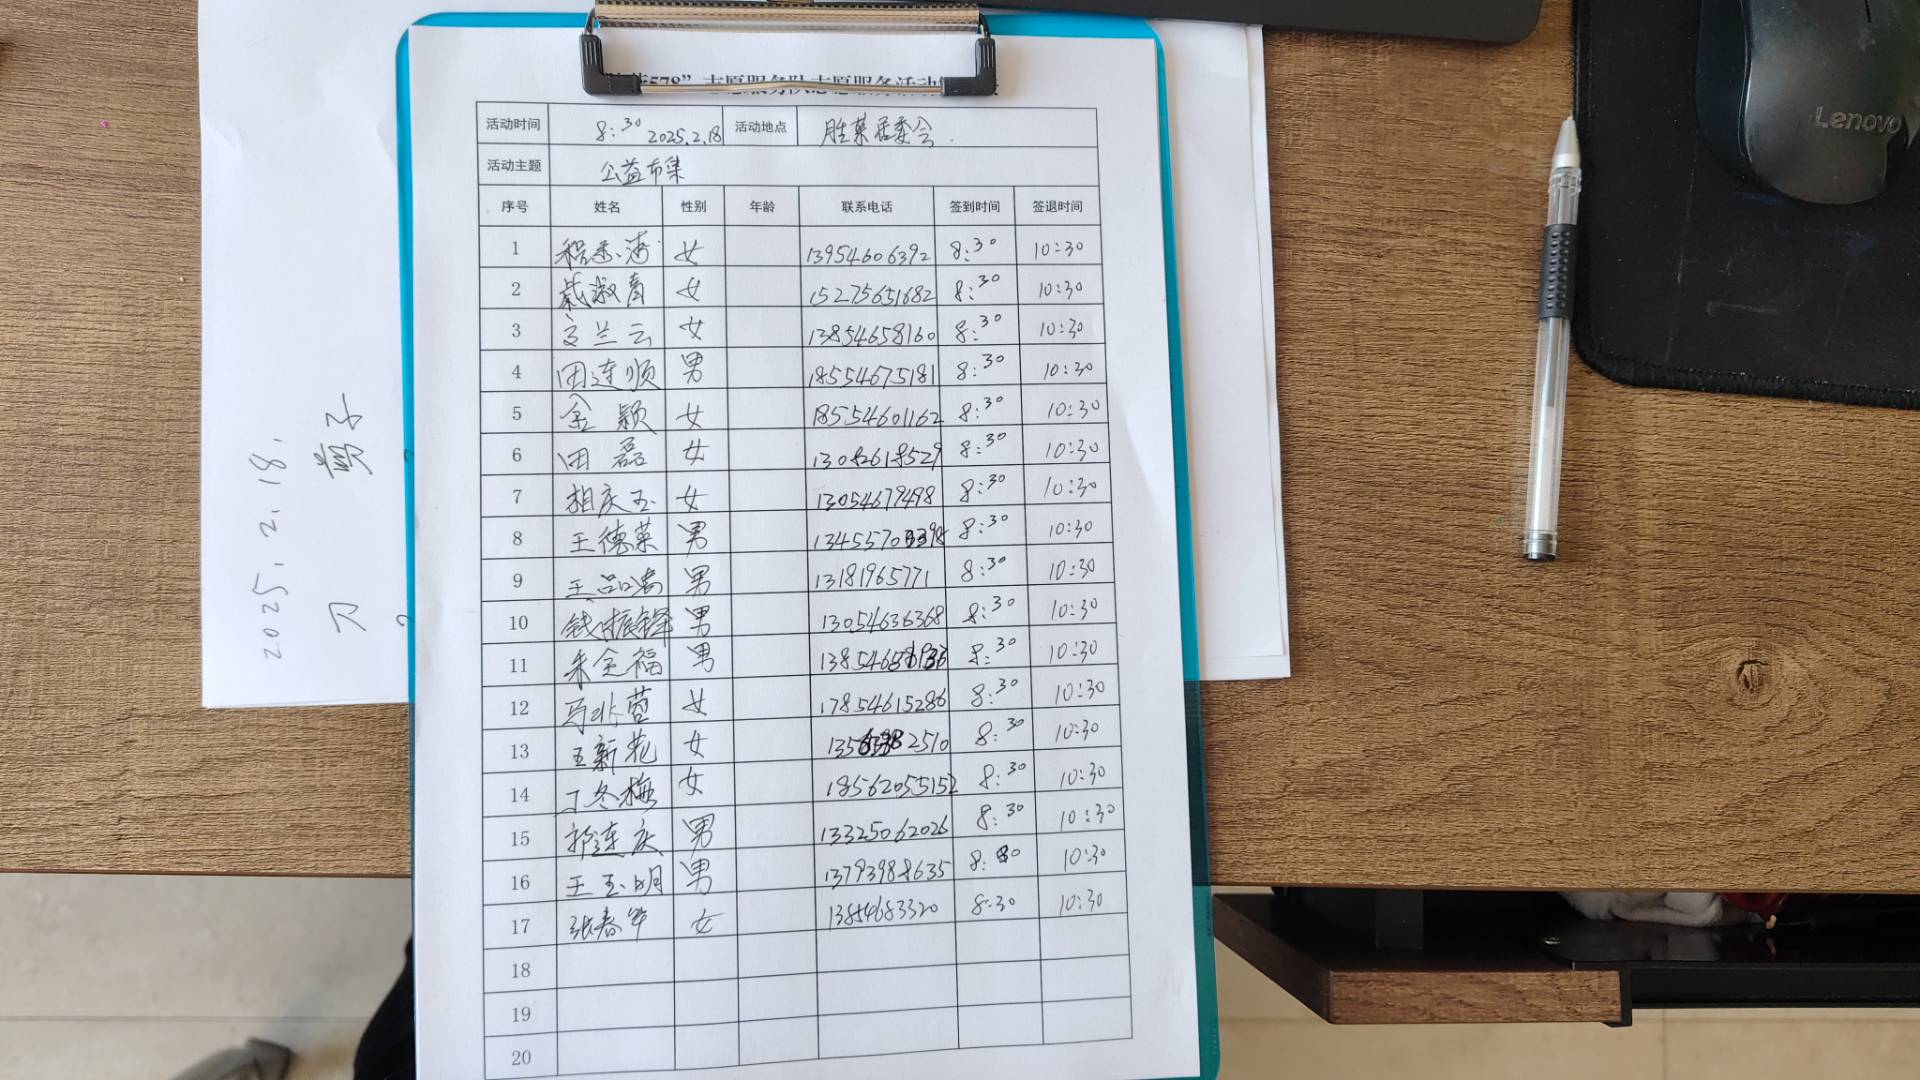 578”志愿服务队志愿服务活动
活动时间 8:30 2025.2.18 活动地点 胜莱居委会.
活动主题 公益市集
序号 姓名 性别 年龄 联系电话 签到时间 签退时间
1 女 13954606392 8:30 10:30
2 戴淑青 女 15275651682 8:30 10:30
3 兰云 女 13854658160 8:30 10:30
4 田连顺 男 18554675181 8:30 10:30
5 金颖 女 18554601162 8:30 10:30
6 田磊 女 8:30 10:30
7 相庆玉 女 13054679498 8:30 10:30
8 王德莱 男 8:30 10:30
9 王 男 13181965771 8:30 10:30
10 钱振锋 男 13054636368 8:30 10:30
11 朱全福 男 8:30 10:30
12 马 女 17854615286 8:30 10:30
13 王新花 女 8:30 10:30
14 丁冬梅 女 18562055152 8:30 10:30
15 郭连庆 男 13325062026 8:30 10:30
16 王玉明 男 13793988635 8:30 10:30
17 张春华 女 13854683320 8:30 10:30
18
19
20
2025.2.18.
剪子
刀
Lenovo